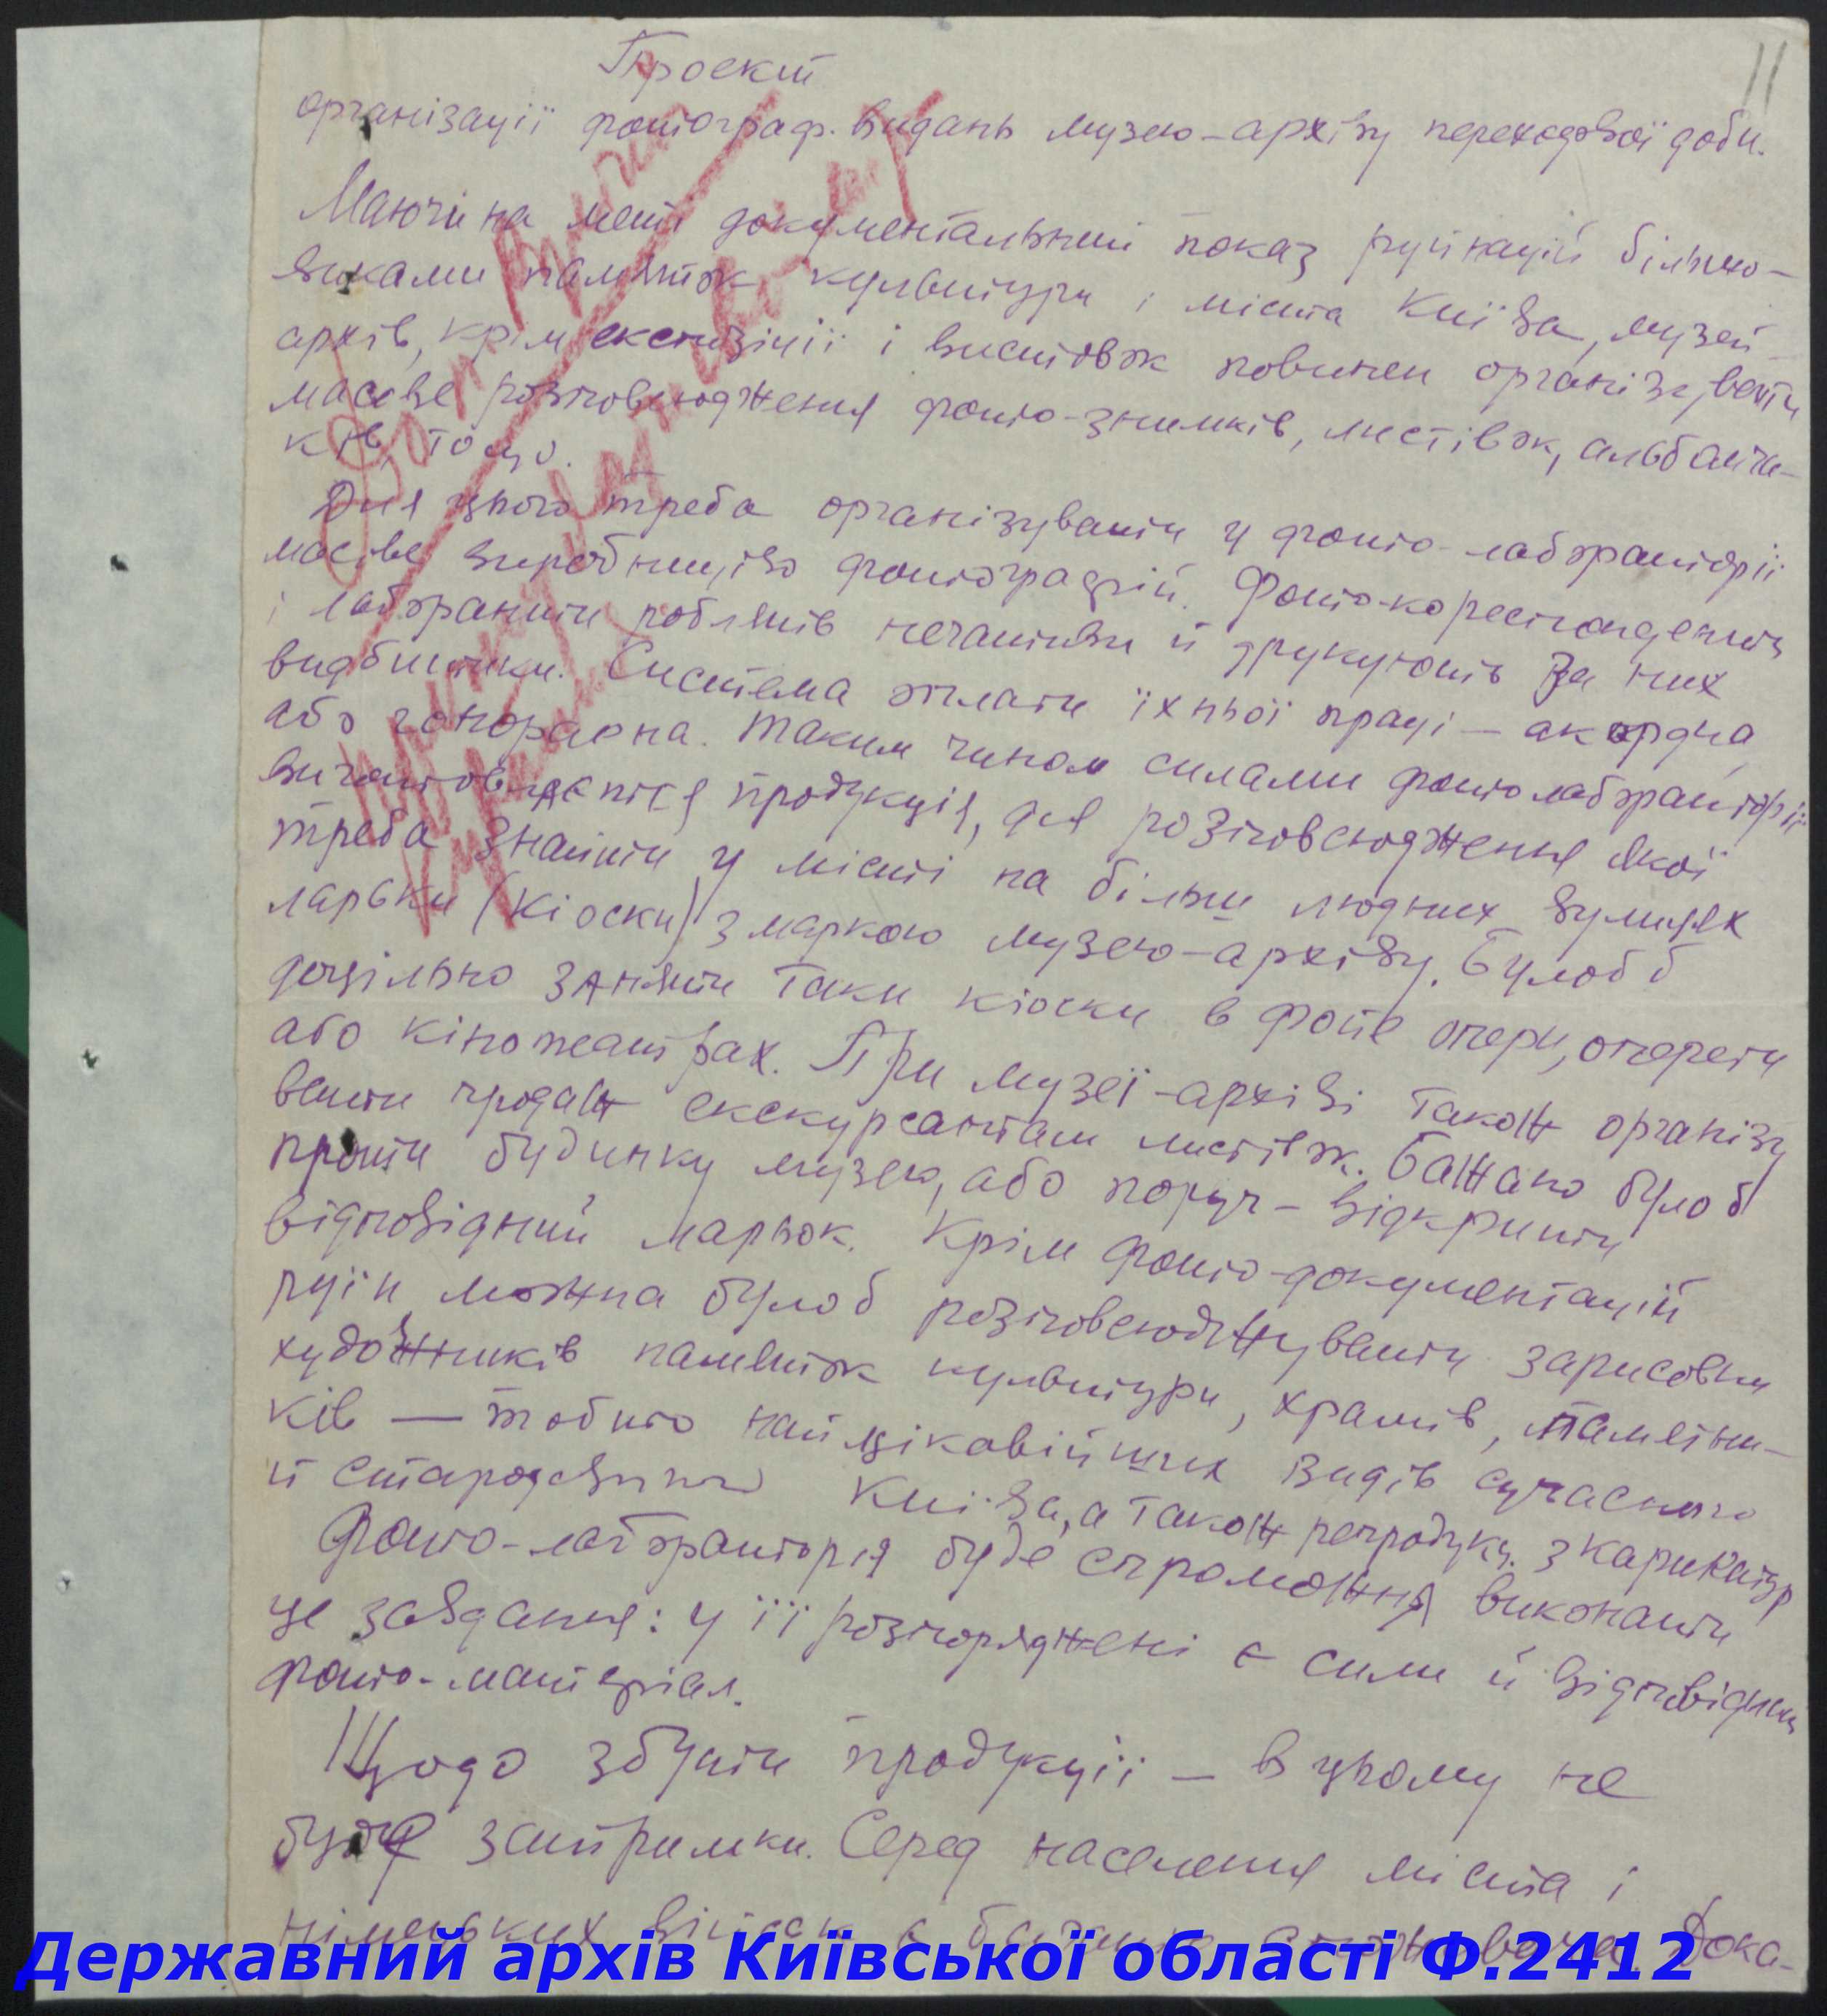 11
Проект
організації фотограф. видань музею-архіву переходової доби.
Маючи на меті документальний показ руйнацій більшо-
виками пам'яток культури і міста Київа, музей-
архів, крім експозіції і виставок повинен організувати
масове розповсюдження фото-знимків, листівок, альбомчи-
ків, тощо.
Для цього треба організувати у фото-лабораторії
масове виробництво фотографій. Фото-кореспонденти
і лаборанти роблять негативи й друкують за них
видбитки. Система оплати їхньої праці – акордна
або гонорарна. Таким чином силами фотолабораторії
виготовляється продукція, для розповсюдження якої
треба знайти у місті на більш людних вулицях
ларьки (кіоски) з маркою музею-архіву. Булоб б
доцільно заняти таки кіоски в фойе опери, оперети
або кінотеатрах. При музеї-архіві також організу
вати продаж екскурсантам листівок. Бажано булоб
проти будинку музею, або поруч – відкрити
відповідний ларьок. Крім фото-документацій
руїн, можна булоб розповсюджувати зарисовки
художників пам'яток культури, храмів, пам'ятни-
ків — тобто найцікавійших видів сучасного
й стародавнього Київа, а також репродукц. з карикатур
Фото-лабораторія буде спроможня виконати
це завдання: у її розпорядженні є сили й відповідний
фото-матеріал.
Щодо збути продукції – в цьому не
буде затримки. Серед населення міста і
німецьких військ є багато Дока-
Державний архів Київської області Ф.2412